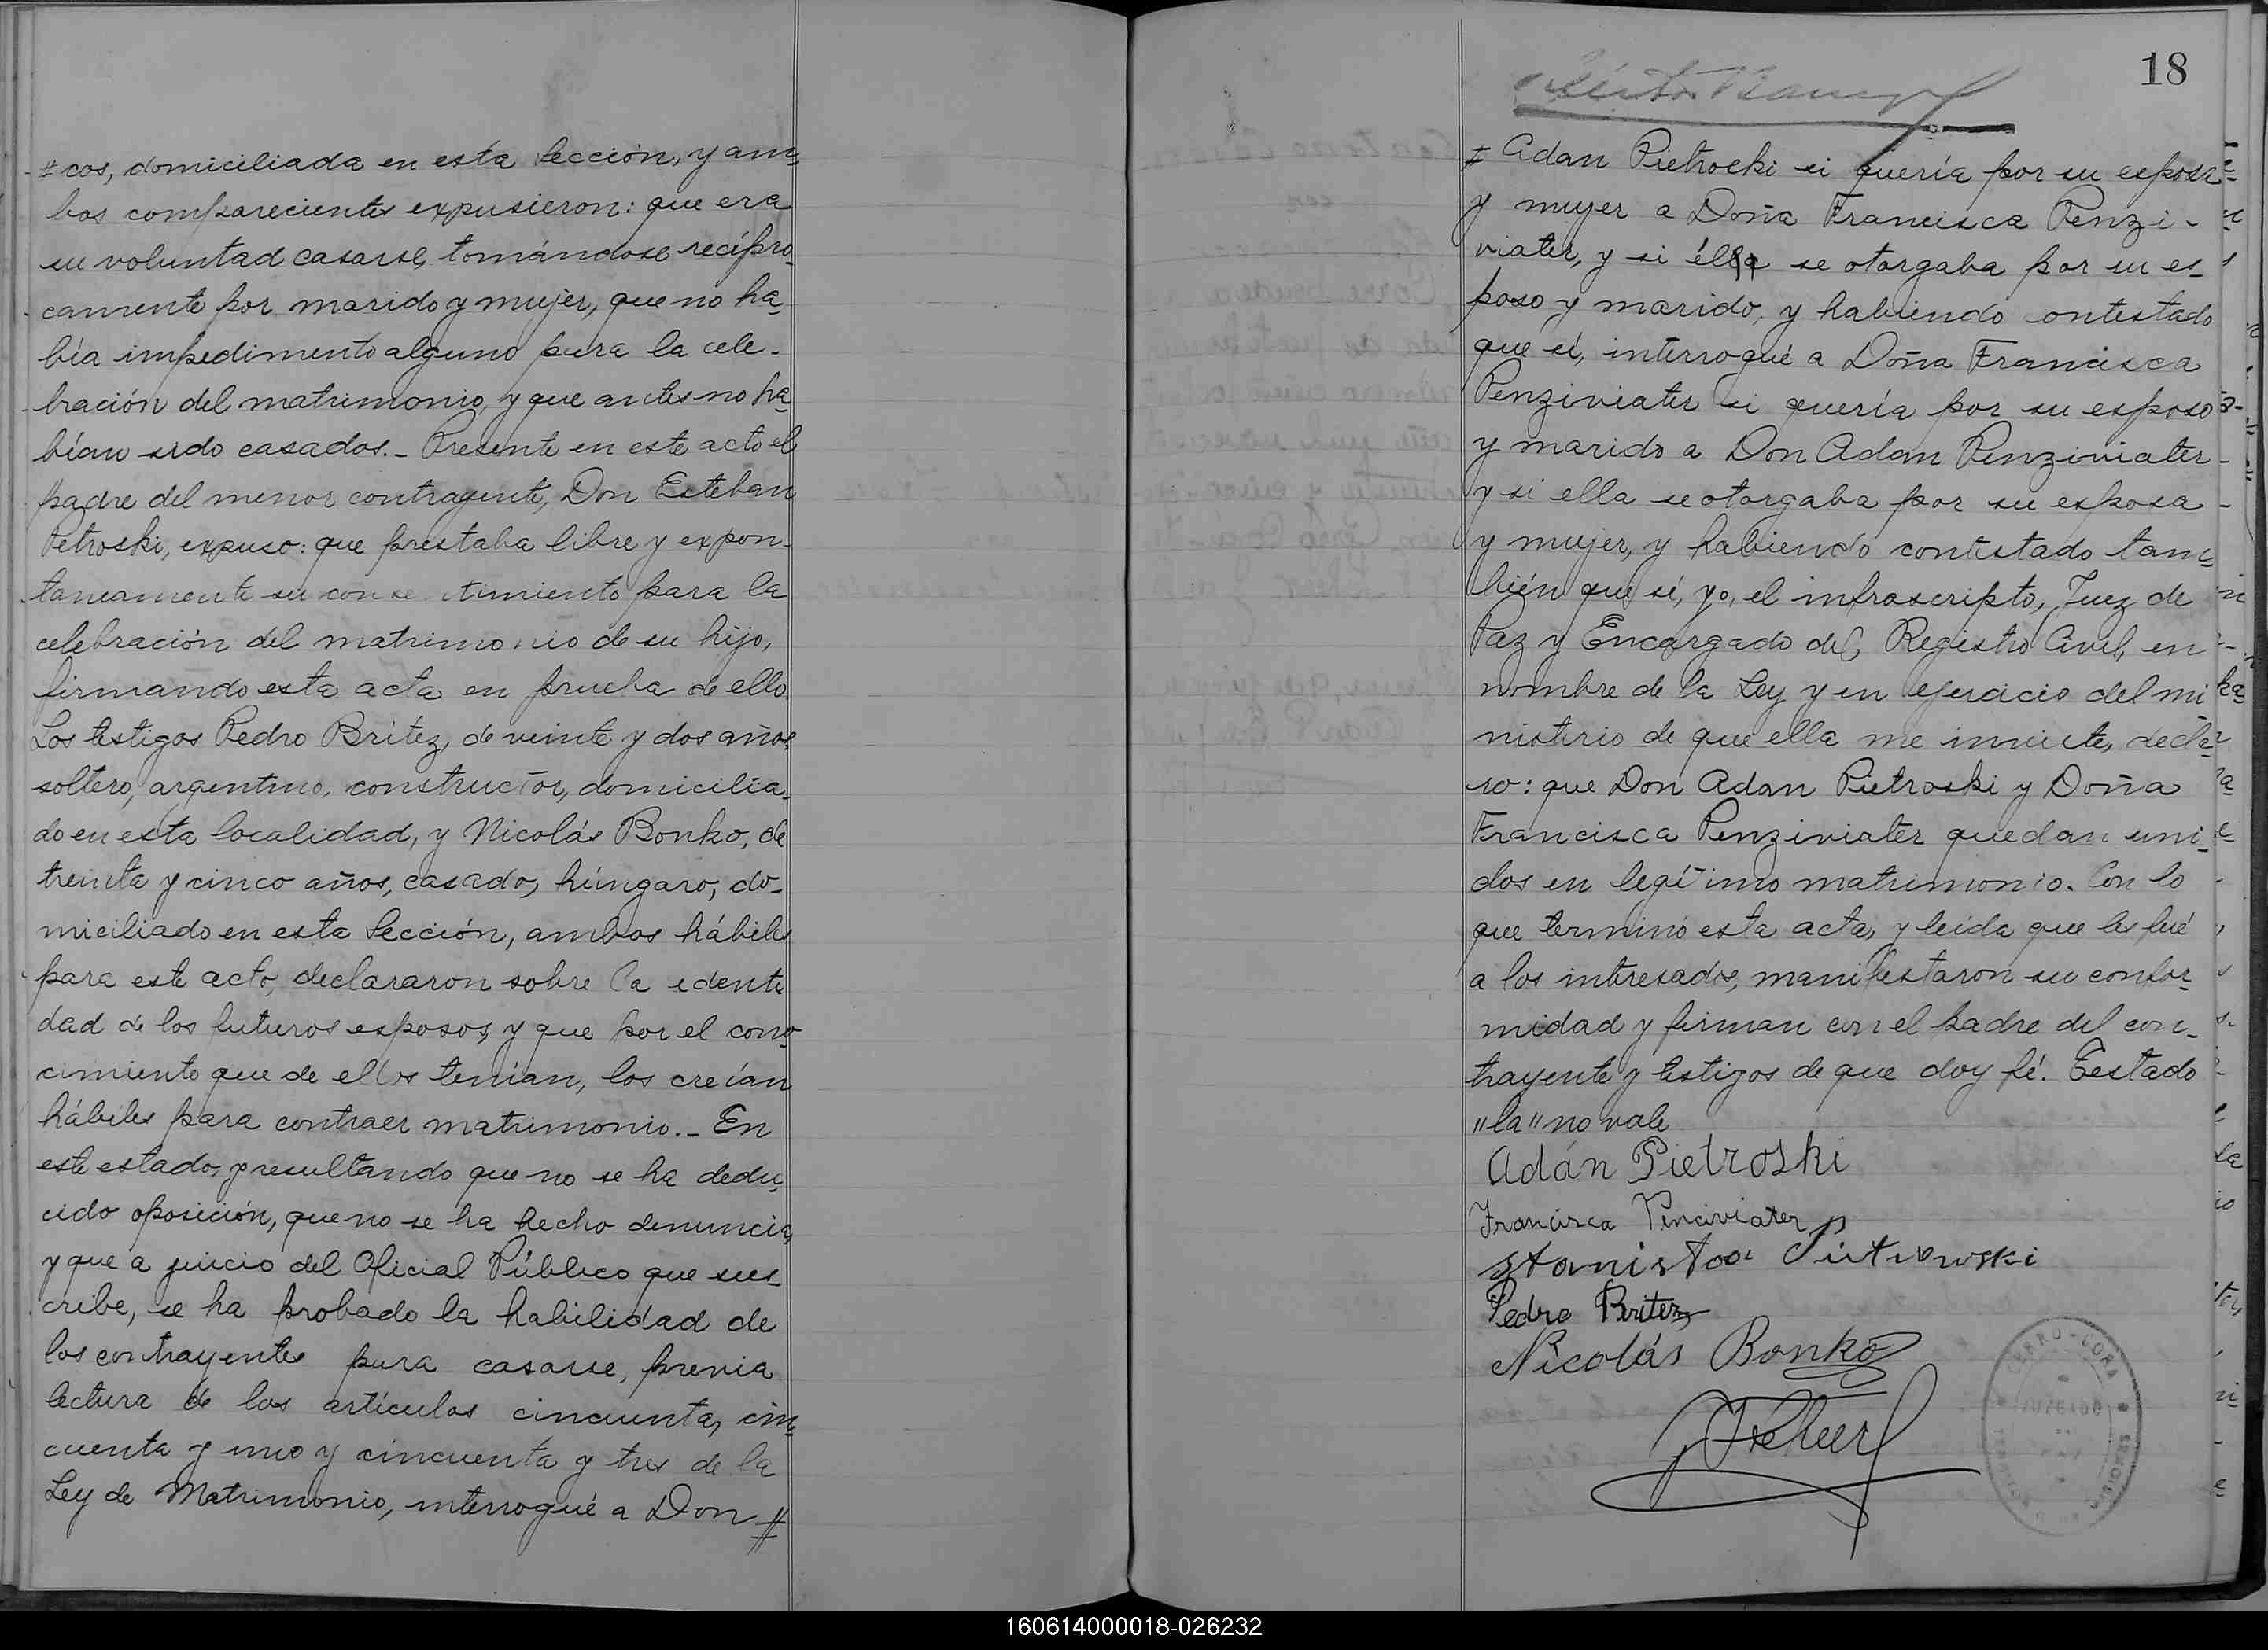 # cos, domiciliada en esta Sección, y am-
bos comparecientes expusieron: que era
su voluntad casarse, tomándose recípro-
camente por marido y mujer, que no ha-
bía impedimento alguno para la cele-
bración del matrimonio, y que antes no ha-
bían sido casados.- Presente en este acto el
padre del menor contrayente, Don Esteban
Petroski, expuso: que prestaba libre y expon-
taneamente su consentimiento para la
celebración del matrimonio de su hijo,
firmando esta acta en prueba de ello.
Los testigos Pedro Britez, de veinte y dos años,
soltero, argentino, constructor, domicilia-
do en esta localidad, y Nicolás Bonko, de
treinta y cinco años, casado, húngaro, do-
miciliado en esta Sección, ambos hábiles
para este acto, declararon sobre la identi
dad de los futuros esposos, y que por el cono-
cimiento que de ellos tenían, los creían
hábiles para contraer matrimonio.- En
este estado, y resultando que no se ha dedu-
cido oposición, que no se ha hecho denuncia,
y que a juicio del Oficial Público que sus-
cribe, se ha probado la habilidad de
los contrayentes para casarse, previa
lectura de los artículos cincuenta, cin-
cuenta y uno y cincuenta y tres de la
Ley de Matrimonio, interrogué a Don #
18
# Adan Pietroski si quería por su esposa
y mujer a Doña Francisca Penzi-
viater, y si él se otorgaba por su es-
poso y marido, y habiendo contestado
que sí, interrogué a Doña Francisca
Penziviater si quería por su esposo
y marido a Don Adan Penziviater
y si ella se otorgaba por su esposa
y mujer, y habiendo contestado tam-
bién que sí, yo, el infrascripto, Juez de
Paz y Encargado del Registro Civil, en
nombre de la Ley y en ejercicio del mi
nisterio de que ella me inviste, decla-
ro: que Don Adan Pietroski y Doña
Francisca Penziviater quedan uni-
dos en legítimo matrimonio. Con lo
que terminó esta acta, y leída que les fué
a los interesados, manifestaron su confor-
midad y firman con el padre del con-
trayente y testigos de que doy fé. Testado
"la" no vale
Adán Pietroski
Francisca Penciviater
Pedro Britez
Nicolás Bonko
CERRO-CORA
160614000018-026232